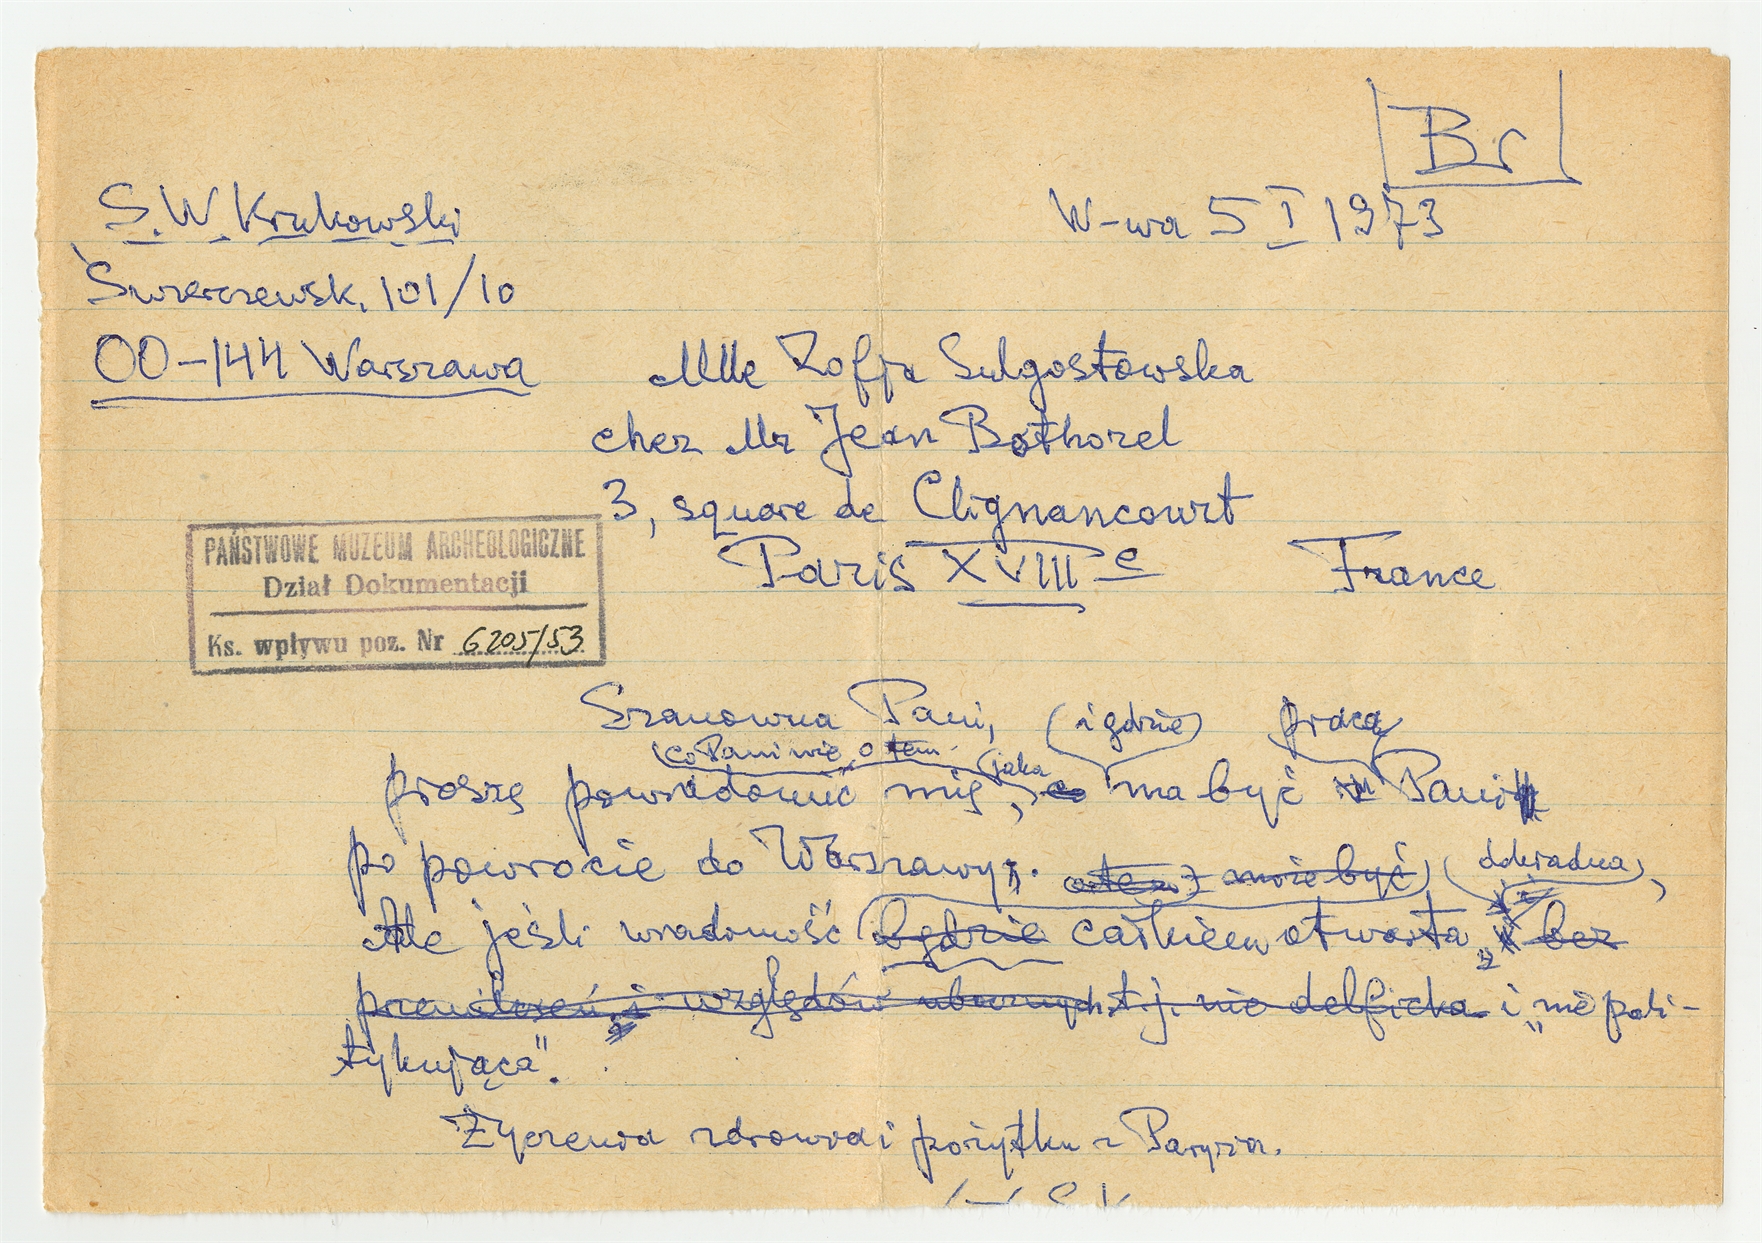 Br
S. W. Krukowski
W-wa 5 I 1973
Świerczewsk. 101/10
00-144 Warszawa
Mlle Zofja Sulgostowska
chez Mr Jean Bothorel
3, square de Clignancourt
Paris XVIII e France
PAŃSTWOWE MUZEUM ARCHEOLOGICZNE
Dział Dokumentacji
Ks. wpływu poz. Nr 6205/53
Szanowna Pani, (i gdzie) pracą
(co Pani wie o tem. (jaka
proszę powiadomić mię, co ma być Pani
po powrocie do Warszawy. może być dokładna,
Ale jeśli wiadomość będzie całkiem otwarta, bez
i względów ubocznych, t.j. nie delficka i „nie poli-
tykująca".
Życzenia zdrowia i pożytku z Paryża.